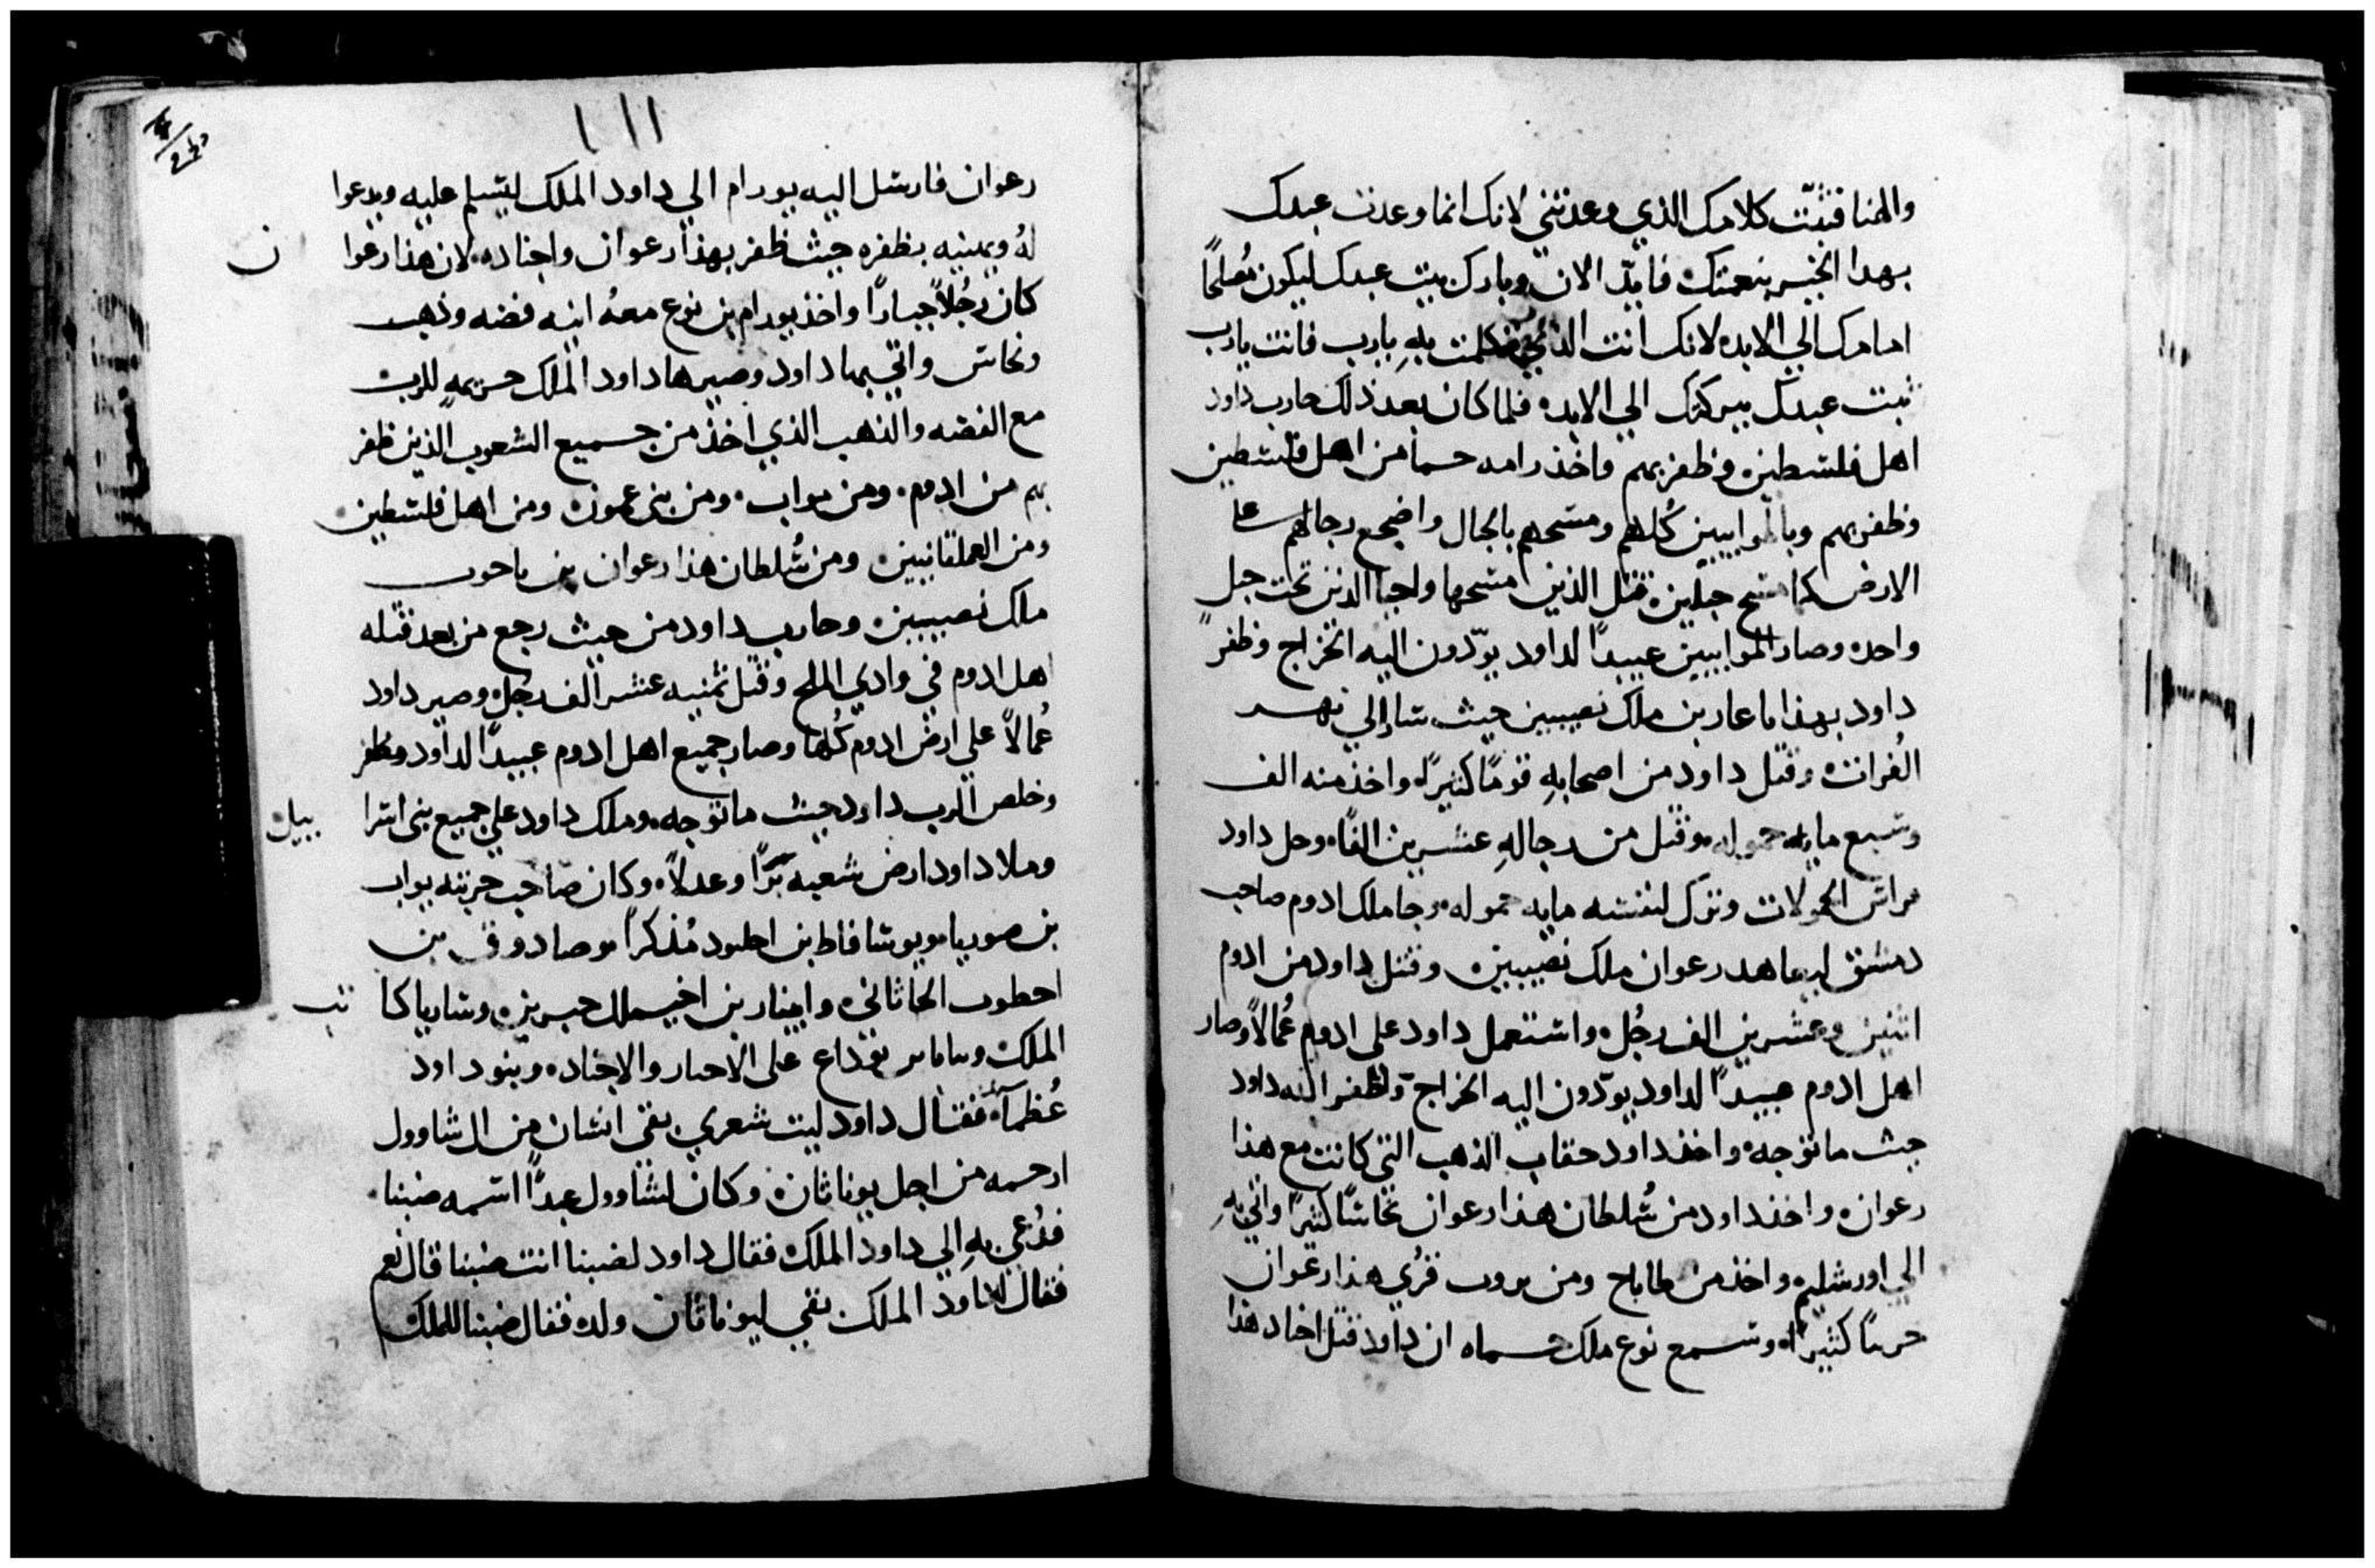 والهنا فثبّت كلامك الذي وعدتني لانك انما وعدت عبدك
بهدا الخير بنعمتك فايّد الان وبارك بيت عبدك ليكون مُصلحًا
امامك الي الابد لانك انت الذي تكلمت به يارب فانت يارب
ثبت عبدك ببركتك الي الابد فلما كان بعد ذلك حارب داود
اهل فلسطين وظفر بهم واخذ رامه حما من اهل فلسطين
وظفر بهم وبالموابيين كُلهم ومسحهم بالحبال واضجع رجالهم علي
الارض كما مسح حبلين فقتل الذين مسحها واحيا الذين تحت حبل
واحد وصار الموابيين عبيدًا لداود يوّدون اليه الخراج وظفر
داود بهذا ماعار بن ملك نصيبين حيث سار الي نهر
الفُرات وقتل داود من اصحابهِ قومًا كثيرًا واخذ منه الف
وسبع مايه حموله وقتل من رجالهِ عشرين الفًا وحل داود
مراس الحمولات وترك لنفسه مايه حموله وجا ملك ادوم صاحب
دمشق ليعاهد رعوان ملك نصيبين وقتل داود من ادوم
اثنين وعشرين الف رجُل واستعمل داود علي ادوم عُمالاً وصار
اهل ادوم عبيدًا لداود يوّدون اليه الخراج واظفر الله داود
حيث ما توجه واخذ داود حقاب الذهب التي كانت مع هذا
رعوان واخذ داود من سُلطان هذا رعوان نحاسًا كثيرًا واتي بهِ
الي اورشليم واخذ من طاباح ومن بروت قرُي هذا رعوان
كثيرًا وسمع نوع ملك حماه ان داود قتل اجناد هذا
١١١
رعوان فارسل اليه يورام الي داود الملك ليسلم عليه ويدعوا
لهُ ويهنيه بظفره حيث ظفر بهذا رعوان واجناده لان هذا رعوا ن
كان رجُلاً جبارًا واخذ يورام بن نوع معهُ انيه فضه وذهب
ونحاس واتي بها داود وصيرها داود الملك حريمهِ للرب
مع الفضه والذهب الذي اخذ من جميع الشعوب الذين ظفر
بهم من ادوم ومن مواب ومن بني عمون ومن اهل فلسطين
ومن العملقانيين ومن سُلطان هذا رعوان بن ياحوب
ملك نصيبين وحارب داود من حيث رجع من بعد قتله
اهل ادوم في وادي الملح وقتل ثمنيه عشر الف رجل وصير داود
عُمالاً علي ارض ادوم كُلها وصار جميع اهل ادوم عبيدًا لداود وظفر
وخلص الرب داود حيث ما توجه وملك داود علي جميع بني اسرا ييل
وملا داود ارض شعبه برًا وعدلاً وكان صاحب حربته يواب
بن صوريا ويوشافاط بن احلود مُذكرًا وصادوق بن
احطوب الحاثاني وابيثار بن اخيملك حبرين وساريا كا تب
الملك يوداع علي الاحبار والاجناد وبنو داود
عُظمآ فقال داود ليت شعري بقي انسان من ال شاوول
ارحمه من اجل يوناثان وكان لشاوول عبدًا اسمه ضبنا
فدُعي بهِ الي داود الملك فقال داود لضبنا انت ضبنا قال نعم
فقال داود الملك بقي ليوناثان ولد فقال ضبنا للملك